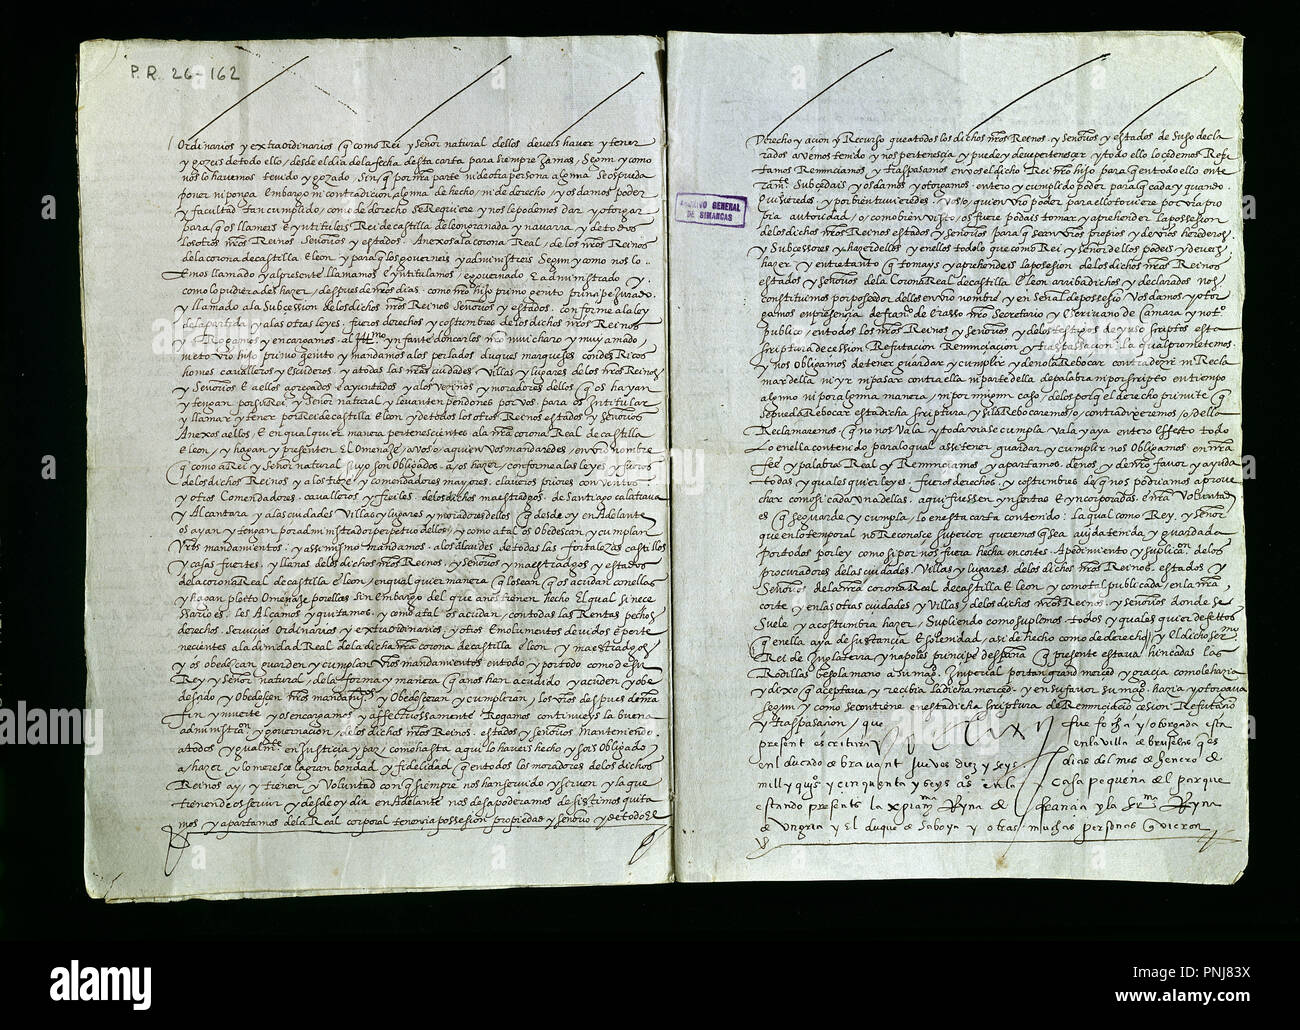 P. R. 26-162
Ordinarios y extraordinarios q como Rei y Señor natural dellos deveis haver y tener
y gozeis de todo ello, desde el dia de la fecha desta carta para siempre jamas, Segun y como
nos lo havemos tenido y gozado, sin q por nra parte ni de otra persona alguna se os pueda
poner ni ponga Embargo ni contradicion alguna de hecho, ni de derecho, y os damos poder
y facultad tan cumplido, como de derecho se Requiere y nos le podemos dar y otorgar
para q os llameis e yntituleis Rei de castilla de leon granada y navarra y de todos
los otros nros Reinos Señorios y estados. Anexos a la corona Real, de los nros Reinos
de la corona de castilla e leon, y para q los governeis y administreis Segun y como nos lo
hemos llamado y al presente llamamos e yntitulamos, e governado E administrado y
como lo pudierades hazer, despues de nros dias. como nro hijo primo genito principe Jurado,
y llamado a la subcession de los dichos nros Reinos Señorios y estados. conforme a la ley
de la partida y a las otras leyes. fueros derechos y costumbre de los dichos nros Reinos
y Rogamos y encargamos. al Illmo ynfante don carlos nro mui charo y muy amado,
nieto vro hijo primo genito y mandamos a los perlados duques marqueses condes Ricos
homes cavalleros y Escuderos. y a todas las nras ciudades villas y lugares de los nros Reinos
y Señorios E a ellos agregados e ayuntados y a los vezinos y moradores dellos q os hayan
y tengan por su Rei y Señor natural y levanten pendones por vos. para os Intitular
y llamar y tener por Rei de castilla e leon y de todos los otros Reinos estados y señorios
Anexos a ellos, E en qualquier manera pertenescientes a la nra corona Real de castilla
e leon, y hagan y presenten El Omenaje, a vos, o a quien vos mandaredes, en vro nombre
q como a Rei y Señor natural suyo son obligados. a, os hazer, conforme a las leyes y fueros
de los dichos Reinos y a los y comendadores mayores. claveros priores conventos
y otros Comendadores. cavalleros y freiles. de los dichos maestradgos. de Santiago calatrava
y Alcantara y a las ciudades villas y lugares y moradores dellos q desde oy en Adelante
os ayan y tengan por administrador perpetuo dellos, y como a tal os obedescan y cumplan
vros mandamientos. y assimismo mandamos. a los alcaides de todas las fortalezas castillos
y casas fuertes. y llanas de los dichos nros Reinos, y Señorios y maestradgos y estados
de la corona Real de castilla e leon, en qualquier manera q lo sean q os acudan con ellas
y hagan pleito Omenaje por ellas sin Embargo del que a nos tienen hecho El qual si nece
ssario es. les Alçamos y quitamos, y como a tal os acudan, con todas las Rentas pechos
derechos. Servicios Ordinarios y extraordinarios. y otros Emolumentos devidos e perte
necientes a la dinidad Real de la dicha nra corona de castilla e leon y maestradgos
y os obedezcan guarden y cumplan vros mandamientos en todo y por todo como de su
Rey y Señor natural, de la forma y manera q a nos han acudido y acuden y obe
descido y obedescen nros mandamtos y obedesceran y cumpliran, los vros despues de nra
fin y muerte y os encargamos y affectuosamente Rogamos continueys la buena
administron y governacion, de los dichos nros Reinos. estados y señorios Manteniendo
a todos ygualmte en Justicia y paz, como hasta aqui lo haveis hecho y sois obligado
a hazer, y lo meresce la gran bondad y fidelidad q en todos los moradores de los dichos
Reinos ay, y tienen y voluntad con q siempre nos han servido y sirven y la que
tienen de os servir y desde oy dia en Adelante nos desapoderamos desistimos quita
mos y apartamos de la Real corporal tenencia possesion propiedad y señorio y de todo El
ARCHIVO GENERAL
DE SIMANCAS
Derecho y acion y Recurso que a todos los dichos nros Reinos. y Señorios y estados de suso decla
rados avemos tenido y nos pertenescia y puede y deve pertenescer y todo ello lo cedemos Refu
tamos Renunciamos y traspassamos en vos el dicho Rei nro hijo para q en todo ello ente
ramte Subcedais y os damos y otorgamos. entero y cumplido poder para q cada y quando
quisieredes, y por bien tuvieredes, vos, o, quien vro poder para ello toviere por via pro
pria autoridad, o, como bien visto, os fuere podais tomar y aprehender la possesion
de los dichos nros Reinos estados y señorios para q sean vros propios y de vros herederos
y subcessores y hazer dellos y en ellos todo lo que como Rei y señor dellos podeis y deveis
hazer y entretanto q tomays y aprehendeis la posesion de los dichos nros Reinos
estados y señorios de la Corona Real de castilla e leon arriba dichos y declarados nos
constituimos por poseedor dellos en vro nombre y en señal de possesio vos damos y otor
gamos en presencia de franco de Erasso nro Secretario y Escrivano de camara y noto
publico, en todos los nros Reinos y Señorios y de los testigos de yuso scriptos esta
scriptura de cession Refutacion Renunciacion y traspassacion la qual prometemos.
y nos obligamos de tener guardar y cumplir y de no la Rebocar contradezir ni Recla
mar della ni yr ni pasar contra ella ni parte della de palabra ni por scripto en tiempo
alguno ni por alguna manera, ni por ningun caso, de los por q el derecho primite q
se pueda Rebocar esta dicha scriptura y si la Rebocaremos, o, contradixeremos, o, dello
Reclamaremos. q no nos vala y todavia se cumpla vala y aya entero effecto todo
Lo en ella contenido para lo qual assi tener guardar y cumplir nos obligamos en nra
fee y palabra Real y Renunciamos y apartamos. de nos y de nro favor y ayuda
todas y qualesquier leyes. fueros derechos. y costumbres de q nos podriamos aprove
char como si cada una dellas. aqui fuessen ynsertas E yncorporadas. e nra voluntad
es q se guarde y cumpla, lo en esta carta contenido: la qual como Rey. y Señor
que en lo temporal no Reconosce superior queremos q sea. auida tenida y guardada
Por todos por ley como si por nos fuera hecha en cortes. A pedimiento y suplicaon. de los
procuradores de las ciudades. villas y lugares. de los dichos nros Reinos. estados y
Señorios. de la nra corona Real de castilla e leon. y como tal publicada, en la nra
corte y en las otras ciudades y villas, de los dichos nros Reinos. y señorios donde se
suele y acostumbra hazer, Supliendo como suplimos. todos y qualesquier defettos
q en ella aya de sustancia E solenidad, asi de hecho como de derecho, y el dicho sermo
Rei de Inglaterra y napoles principe despaña q presente estava hincadas las
Rodillas beso la mano a su mag. Imperial por tan grand merced y gracia como le hazia
y dixo q aceptava y recibia la dicha merced. y en su favor su mag. hazia y otorgava
segun y como se contiene en esta dicha scriptura de Renunciacion cesion Refutacio
y traspasacion, que fue fecha y otorgada esta
presente escritura en la villa de bruselas q es
en l ducado de bravant jueves diez y seys dias del mes de henero de
mill y quis y cinquenta y seys as en la casa pequeña del parque
estando presente la xpianma Reyna de francia y la serma Reyna
de Ungria y el duque de saboya y otras muchas personas q vieron
alamy
PNJ83X
www.alamy.com